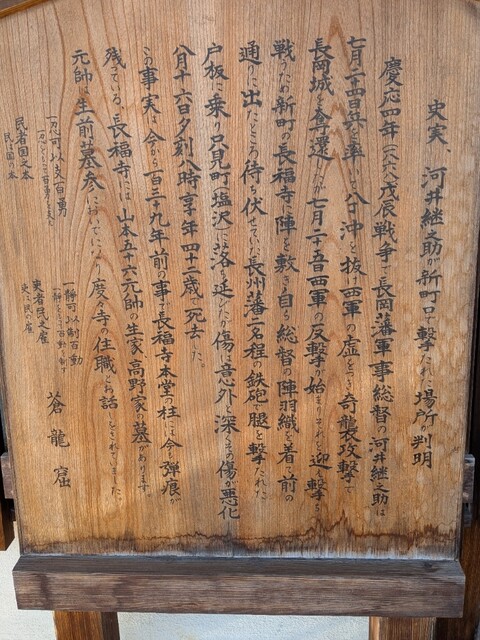 史実 河井継之助が新町口で撃たれた場所が判明
慶応四年(一八六八)戊辰戦争で長岡藩軍事総督の河井継之助は
七月二十四日兵を率いて八丁沖を抜け西軍の虚をつき奇襲攻撃で
長岡城を奪還したが七月二十五日西軍の反撃が始まりそれを迎え撃ち
戦うため新町の長福寺に陣を敷き自ら総督の陣羽織を着て前の
通りに出たところ待ち伏せていた長州藩一名程の鉄砲で腿を撃たれた
戸板に乗り只見町(塩沢)に落ち延びたが傷は意外と深くその傷が悪化
八月十六日夕刻八時享年四十二歳で死去した。
この事実は今から百三十九年前の事で長福寺本堂の柱に今も弾痕が
残っている。長福寺には山本五十六元帥の生家、高野家の墓があります
元帥は生前墓参においでになり度々寺の住職とお話しをされていました。
一忍可以支百勇 一静可以制百動
民者国之本 吏者民之雇
民は国の本 吏は民の雇
蒼龍窟